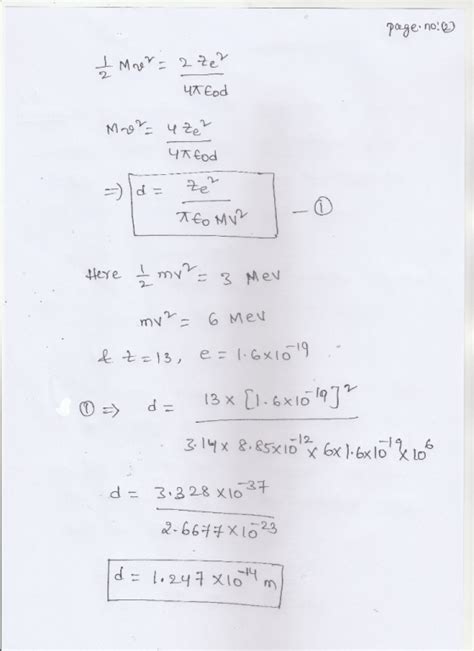 page.no:②
1/2 Mv² = 2 Ze² / 4πϵ₀d
Mv² = 4 Ze² / 4πϵ₀d
⇒) d = Ze² / πϵ₀ MV² — ①
Here 1/2 mv² = 3 Mev
mv² = 6 Mev
& z=13, e = 1.6×10⁻¹⁹
① ⇒ d = 13 × [1.6×10⁻¹⁹]² / 3.14 × 8.85×10⁻¹² × 6×1.6×10⁻¹⁹ × 10⁶
d = 3.328 ×10⁻³⁷ / 2.6677 ×10⁻²³
d = 1.247 ×10⁻¹⁴ m